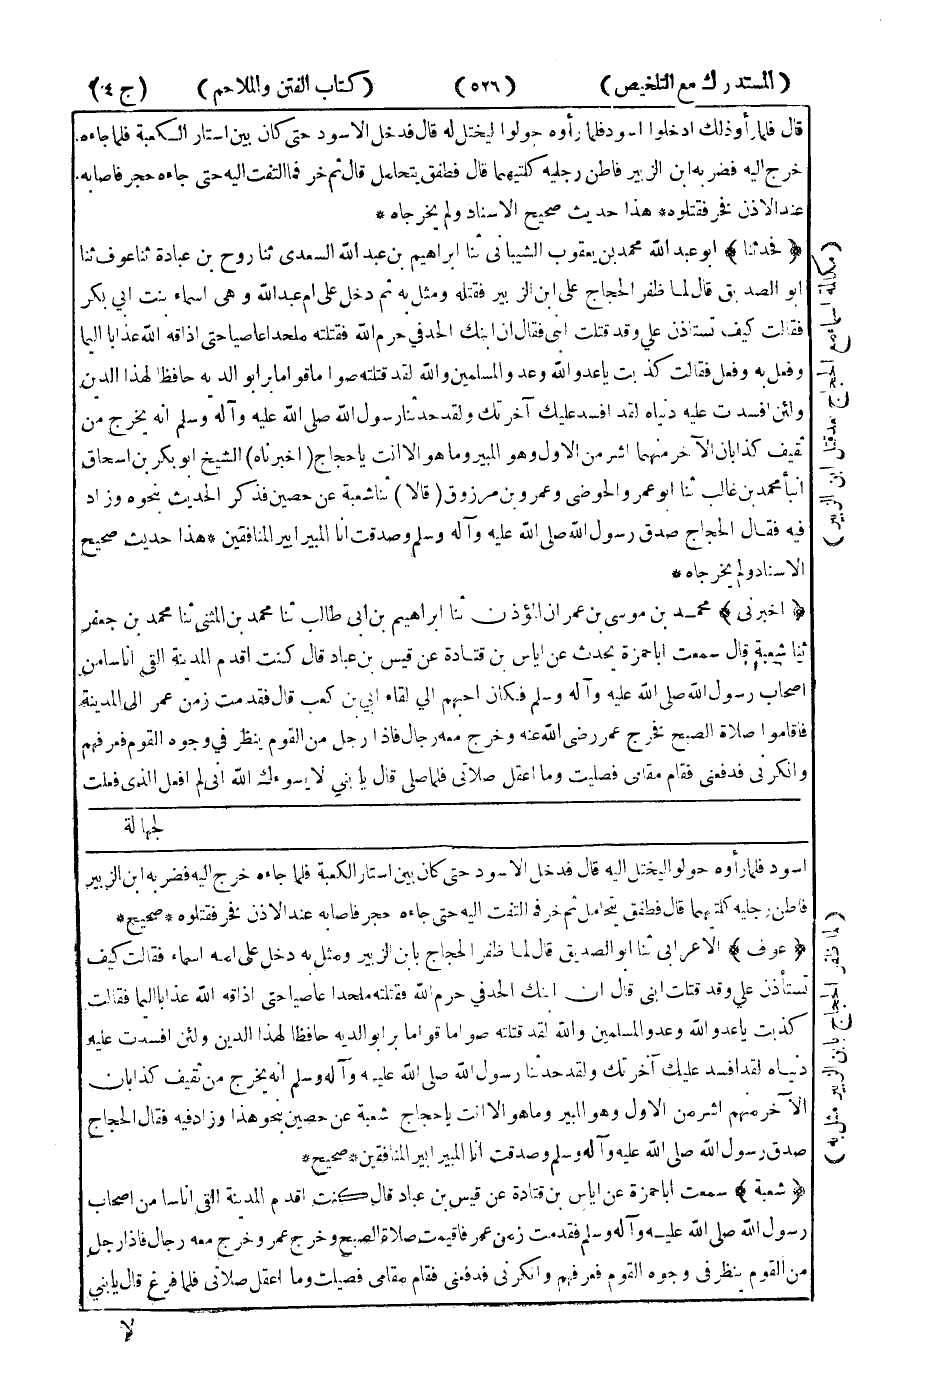 (المستدرك مع التلخيص) (٥٢٦) (كتاب الفتن والملاحم) (ج ٤٠)
قال فلما رأوذلك ادخلوا اسود فلما رأوه حولوا ليختل له قال فدخل الاسود حتى كان بين استار الكعبة فلما جاءه
خرج اليه فضربه ابن الزبير فاطن رجليه كلتيهما قال فطفق يتحامل قال ثم خر فما التفت اليه حتى جاءه حجر فاصابه
عند الاذن فخر فقتلوه * هذا حديث صحيح الاسناد ولم يخرجاه *
﴿ فحدثنا ﴾ ابو عبد الله محمد بن يعقوب الشيباني ثنا ابراهيم بن عبد الله السعدى ثنا روح بن عبادة ثنا عوف ثنا
ابو الصديق قال لما ظفر الحجاج على ابن الزبير فقتله ومثل به ثم دخل على ام عبد الله وهى اسماء بنت ابي بكر
فقالت كيف تستأذن علي وقد قتلت ابنى فقال ان ابنك الحد في حرم الله فقتلته ملحدا عاصيا حتى اذاقه الله عذابا اليما
وفعل به وفعل فقالت كذبت يا عدو الله وعدو المسلمين والله لقد قتلته صواما قواما برا بوالديه حافظا لهذا الدين
ولئن افسدت عليه دنياه لقد افسد عليك آخرتك ولقد حدثنا رسول الله صلى الله عليه وآله وسلم انه يخرج من
ثقيف كذابان الآخر منهما اشر من الاول وهو المبير وما هو الا انت يا حجاج (اخبرناه) الشيخ ابو بكر بن اسحاق
انبأ محمد بن غالب ثنا ابو عمر والحوضى وعمرو بن مرزوق (قالا) ثنا شعبة عن حصين فذكر الحديث بنحوه وزاد
فيه فقال الحجاج صدق رسول الله صلى الله عليه وآله وسلم وصدقت انا المبير ابير المنافقين * هذا حديث صحيح
الاسناد ولم يخرجاه *
﴿ اخبرنى ﴾ محمد بن موسى بن عمران المؤذن ثنا ابراهيم بن ابى طالب ثنا محمد بن المثنى ثنا محمد بن جعفر
ثنا شعبة قال سمعت ابا حمزة يحدث عن اياس بن قتادة عن قيس بن عباد قال كنت اقدم المدينة القى اناسا من
اصحاب رسول الله صلى الله عليه وآله وسلم فكان احبهم الي لقاء ابي بن كعب قال فقدمت زمن عمر الى المدينة
فاقاموا صلاة الصبح فخرج عمر رضى الله عنه وخرج معه رجال فاذا رجل من القوم ينظر في وجوه القوم فعرفهم
وانكرنى فدفعنى فقام مقامى فصليت وما اعقل صلاتى فلما صلى قال يا بني لا يسوءك الله انى لم افعل الذى فعلت
لجهالة
اسود فلما رأوه حولو اليختل اليه قال فدخل الاسود حتى كان بين استار الكعبة فلما جاءه خرج اليه فضربه ابن الزبير
فاطن رجليه كلتيهما قال فطفق يتحامل ثم خر فما التفت اليه حتى جاءه حجر فاصابه عند الاذن فخر فقتلوه * صحيح *
﴿ عوف ﴾ الاعرابى ثنا ابو الصديق قال لما ظفر الحجاج بابن الزبير ومثل به دخل على امه اسماء فقالت كيف
تستأذن علي وقد قتلت ابنى قال ان ابنك الحد في حرم الله فقتلته ملحدا عاصيا حتى اذاقه الله عذابا اليما فقالت
كذبت يا عدو الله وعدو المسلمين والله لقد قتلته صواما قواما برا بوالديه حافظا لهذا الدين ولئن افسدت عليه
دنياه لقد افسد عليك آخرتك ولقد حدثنا رسول الله صلى الله عليه وآله وسلم انه يخرج من ثقيف كذابان
الآخر منهم اشر من الاول وهو المبير وما هو الا انت يا حجاج شعبة عن حصين بنحو هذا وزاد فيه فقال الحجاج
صدق رسول الله صلى الله عليه وآله وسلم وصدقت انا المبير ابير المنافقين * صحيح *
﴿ شعبة ﴾ سمعت ابا حمزة عن اياس بن قتادة عن قيس بن عباد قال كنت اقدم المدينة القى اناسا من اصحاب
رسول الله صلى الله عليه وآله وسلم فقدمت زمن عمر فاقيمت صلاة الصبح وخرج عمر وخرج معه رجال فاذا رجل
من القوم ينظر فى وجوه القوم فعرفهم وانكرنى فدفعنى فقام مقامى فصليت وما اعقل صلاتى فلما فرغ قال يا بني
لا
(مكالمة اسماء مع الحجاج بعد قتل ابن الزبير)
(لما ظفر الحجاج بابن الزبير مثل به)